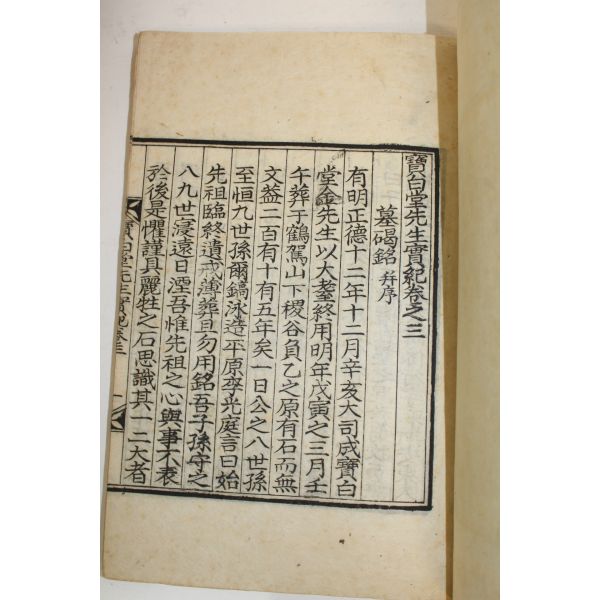 寶白堂先生實紀卷之三
墓碣銘 幷序
有明正德十二年十二月辛亥大司成寶白
堂金先生以大耋終用明年戊寅之三月壬
午葬于鶴駕山下稷谷負乙之原有石而無
文蓋二百有十五年矣一日公之八世孫
至恒九世孫爾鎬泳造平原李光庭言曰始
先祖臨終遺戒薄葬且勿用銘吾子孫守之
八九世寖遠日湮吾惟先祖之心與事不表
於後是懼謹具麗牲之石思識其一二大者
寶白堂先生實紀卷三
一